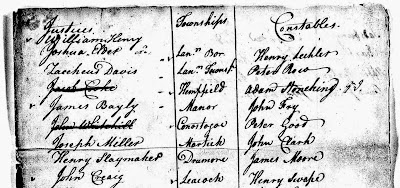 Justices Townships Constables
William Henry
Joshua Elder Lanr Bor Henry Lechler
Zaccheus Davis Lanr Townsp Peter Row
Jacob Cooke Hempfield Adam
James Bayly Manor John Fry
John Whitehill Conostogoe Peter Good
Joseph Miller Martick John Clark
Henry Slaymaker Drumore James Moore
John Craig Leacock Henry Swope